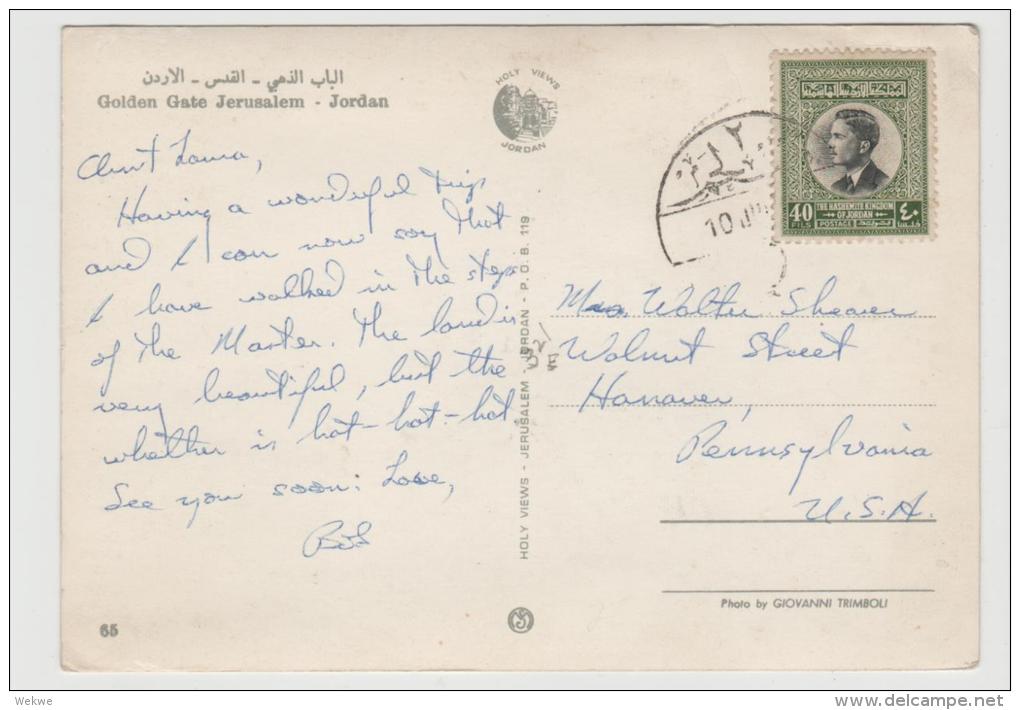 الباب الذهبي - القدس - الاردن
Golden Gate Jerusalem - Jordan
HOLY VIEWS
JORDAN
Aunt Laura,
Having a wonderful trip
and I can now say that
I have walked in the steps
of the Master. The land is
very beautiful, but the
whether is hot-hot-hot.
See you soon: Love,
Bill
65
HOLY VIEWS - JERUSALEM - JORDAN - P.O.B. 119
المملكة الاردنية الهاشمية
40
FILS
THE HASHEMITE KINGDOM
OF JORDAN
POSTAGE
٤٠
10
Mrs. Walter Shearer
Walnut Street
Hanover,
Pennsylvania
U.S.A.
Photo by GIOVANNI TRIMBOLI
Wekwe
delcampe.net